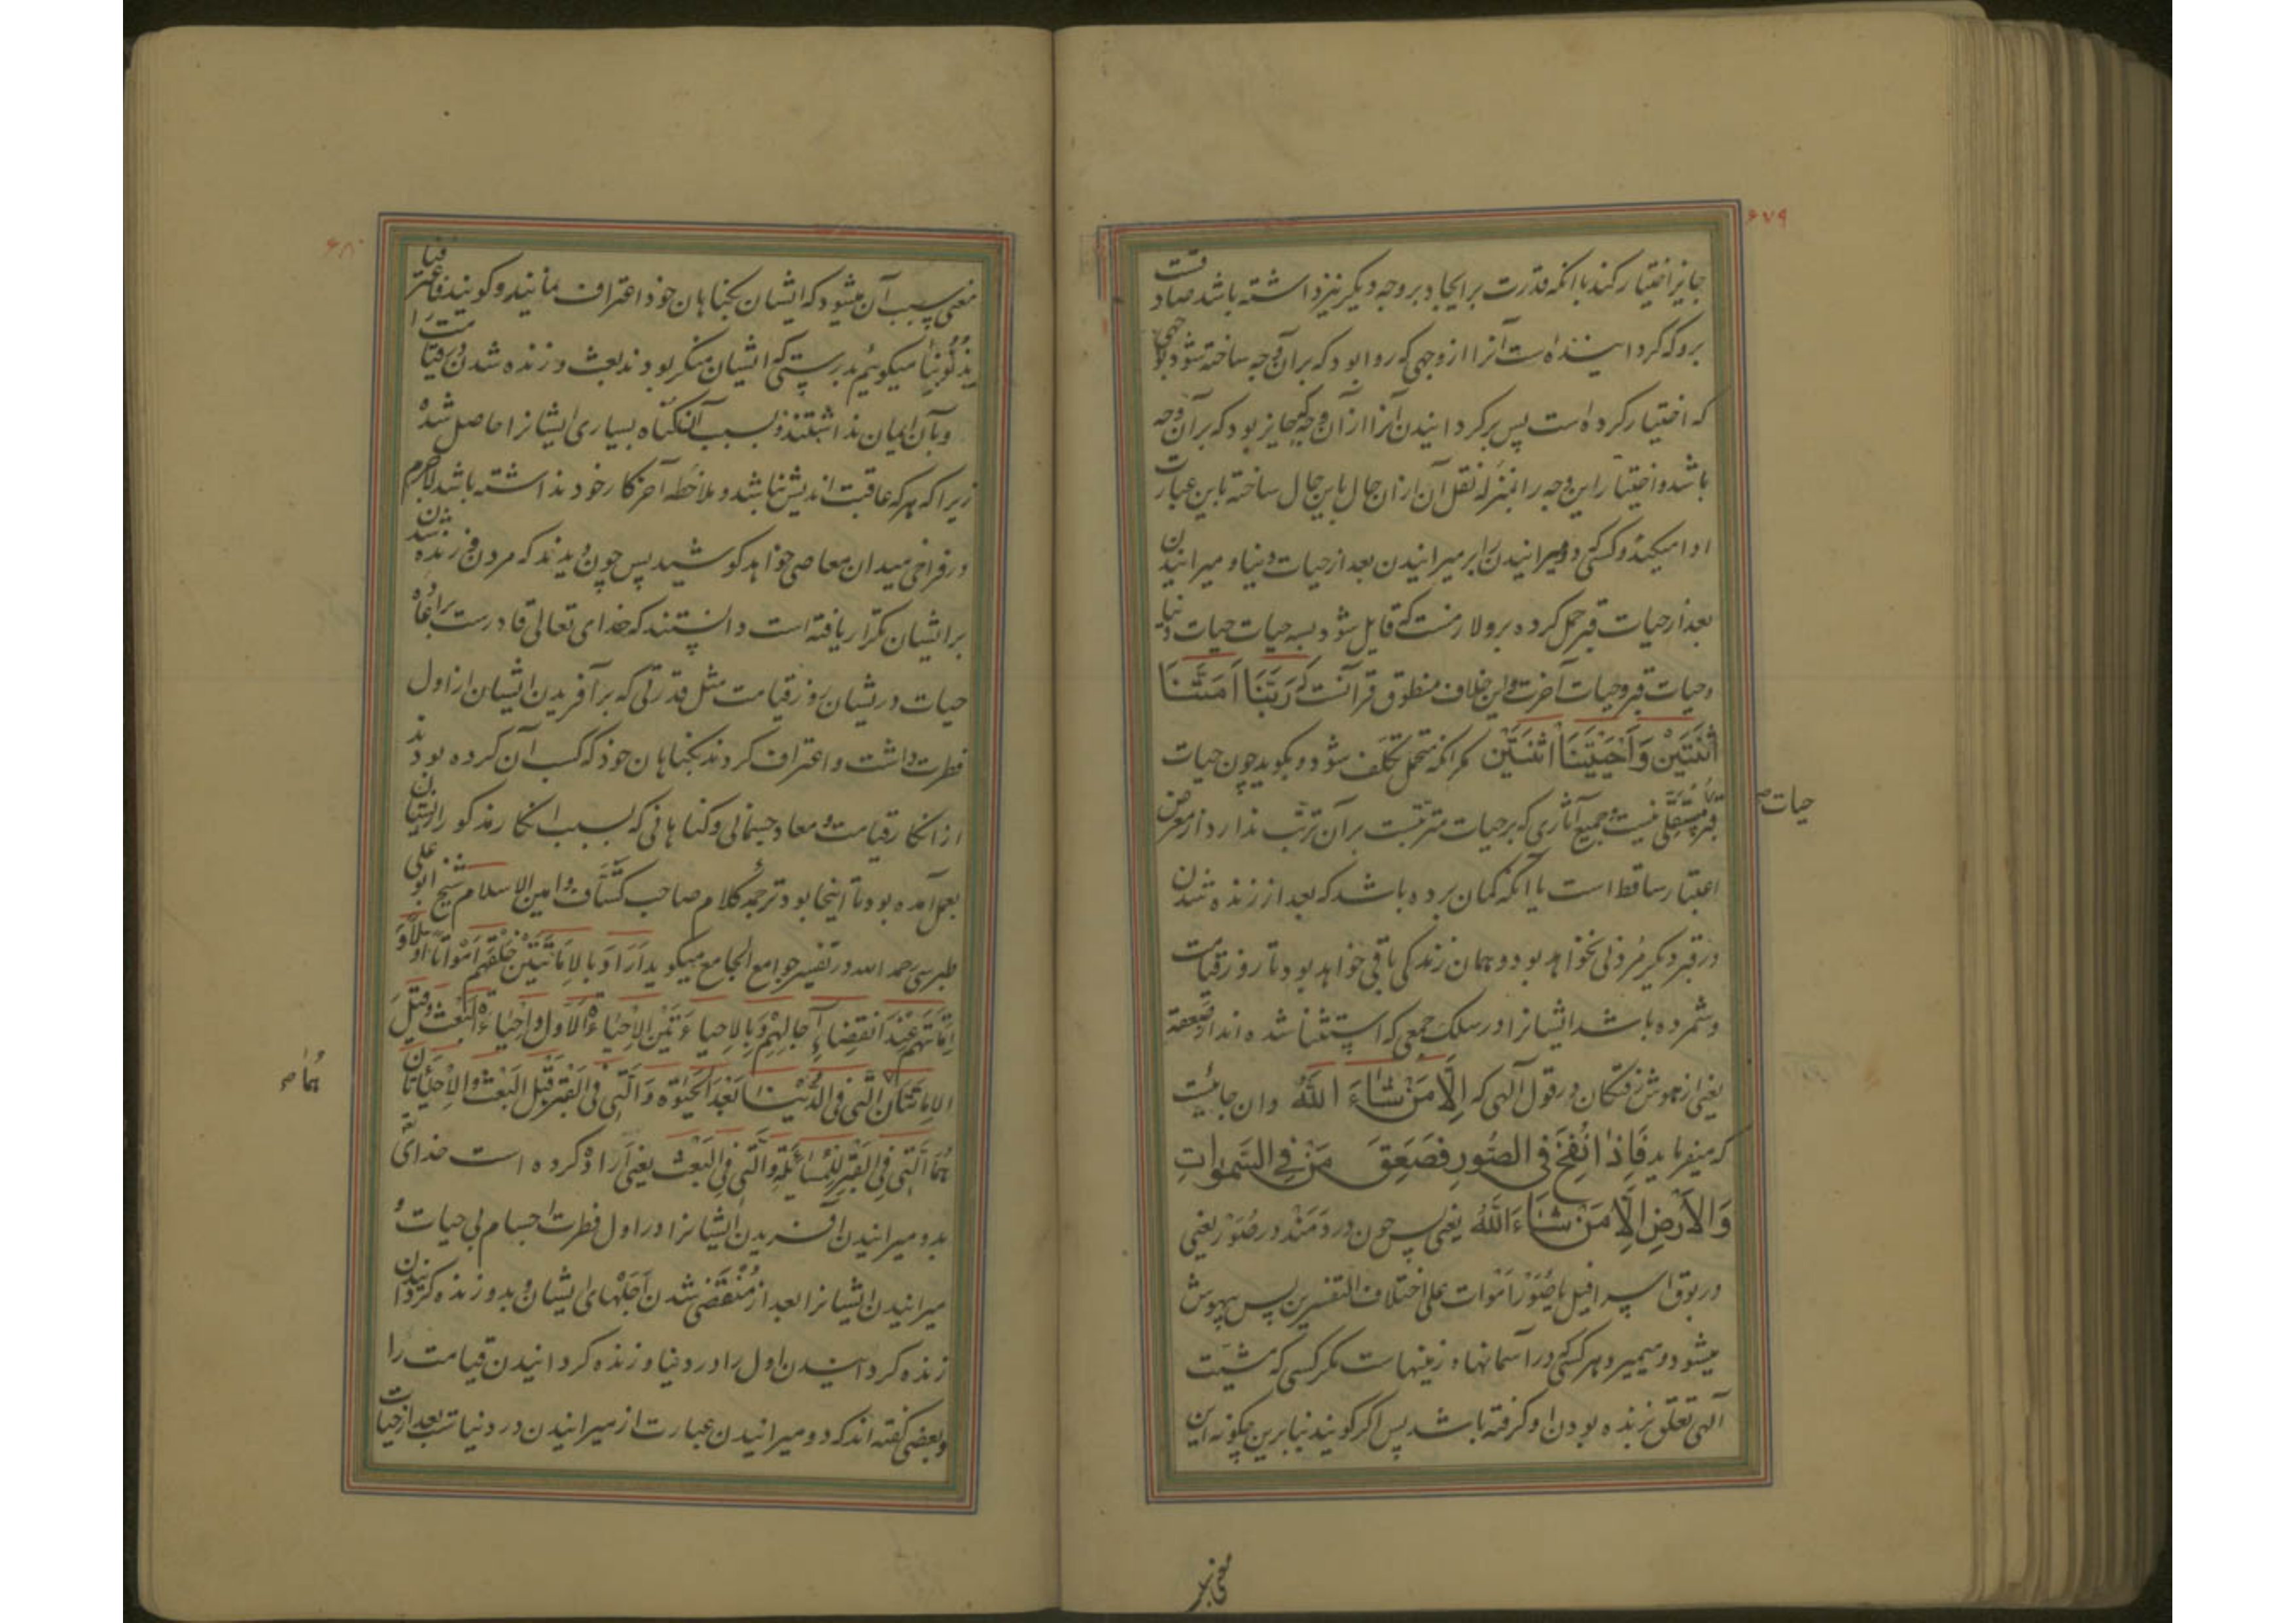 ۶۷۹
جایز اختیار کند با آنکه قدرت بر ایجاد بر وجه دیگر نیز داشته باشد صادقست
برو که گردانیده است آنرا از وجهی که روا بود که بر آن وجه ساخته شود بوجهی
که اختیار کرده است پس برگردانیدن آنرا از آن وجه که جایز بود که بر آن وجه
باشد و اختیار این وجه را بمنزله نقل آن از آن حال باین حال ساخته باین عبارت
ادا میکنند و کسی که دو میرانیدن را بر میرانیدن بعد از حیات دنیا و میرانیدن
بعد از حیات قبر حمل کرده برو لازمست که قایل شود بسه حیات حیات دنیا
و حیات قبر و حیات آخرت و این خلاف منطوق قرآنست که رَبَّنَا اَمَتَّنَا
اثْنَتَیْنِ وَاَحْیَیْتَنَا اثْنَتَیْنِ مگر آنکه متحمل تکلف شود و بگوید چون حیات
قبر مستقلی نیست جمیع آثاری که بر حیات مترتبست بر آن ترتب ندارد از معرض
حیات
اعتبار ساقط است یا آنکه گمان برده باشد که بعد از زنده شدن
در قبر دیگر مردنی نخواهد بود و همان زندگی باقی خواهد بود تا روز قیامت
و شمرده باشد ایشانرا در سلک جمعی که استثنا شده اند از صعقه
یعنی از هوش رفتگان در قول آلهی که اِلَّا مَنْ شَاءَ اللهُ و ان جائیست
که میفرماید فَاِذَا نُفِخَ فِی الصُّورِ فَصَعِقَ مَنْ فِی السَّمٰوَاتِ
وَالْاَرْضِ اِلَّا مَنْ شَاءَ اللهُ یعنی پس چون در دمند در صور یعنی
در بوق اسرافیل یا صُوَر اموات علی اختلاف التفسیرین پس بیهوش
میشود و میمیرد هر کسی که در آسمانها و زمینهاست مگر کسی که مشیت
آلهی تعلق بزنده بودن او گرفته باشد پس اگر گویند بنابرین چگونه این
۶۸۰
معنی سبب آن میشود که ایشان بگناهان خود اعتراف نمایند و گویند فاعترفنا
بِذُنُوبِنَا میگوئیم بدرستی که ایشان منکر بودند بعث و زنده شدن قیامت را
و بآن ایمان نداشتند و بسبب آن گناه بسیاری ایشانرا حاصل شده
زیرا که هر که عاقبت اندیش نباشد و ملاحظه آخر کار خود نداشته باشد لاجرم
در فراخی میدان معاصی خواهد کوشید پس چون دیدند که مردن و زنده شدن
بر ایشان تکرار یافته است دانستند که خدای تعالی قادرست بر اعاده
حیات در یشان روز قیامت مثل قدرتی که بر آفریدن ایشان از اول
فطرت داشت و اعتراف کردند بگناهان خود که کسب آن کرده بودند
از انکار قیامت و معاد جسمانی و گناهانی که بسبب انکار مذکور از ایشان
بعمل آمده بود تا اینجا بود ترجمه کلام صاحب کشّاف و امین الاسلام شیخ ابو علی
طبرسی رحمه الله در تفسیر جوامع الجامع میگوید اَرَادَ بِالاِمَاتَتَیْنِ خَلْقَهُمْ اَمْوَاتًا اَوَّلًا وَ
اِمَاتَتَهُمْ عِنْدَ انْقِضَاءِ آجَالِهِمْ وَبِالاِحْیَاءَتَیْنِ الاِحْیَاءَةَ الاُولٰی وَاِحْیَاءَةَ البَعْثِ وَقِیْلَ
الاِمَاتَتَانِ الَّتِی فِی الدُّنْیَا بَعْدَ الْحَیٰوةِ وَالَّتِی فِی الْقَبْرِ قَبْلَ الْبَعْثِ وَالاِحْیَاءَتَانِ
هُمَا
هُمَا الَّتِی فِی الْقَبْرِ لِلْمُسَائَلَةِ وَالَّتِی فِی الْبَعْثِ یعنی اراده کرده است خدای تعا
بدو میرانیدن آفریدن ایشانرا در اول فطرت اجسام بی حیات و
میرانیدن ایشانرا بعد از مُنْقَضِی شدن اَجَلهای ایشان و بدو زنده گردانیدن
زنده گردانیدن اول را در دنیا و زنده گردانیدن قیامت را
و بعضی گفته اند که دو میرانیدن عبارت از میرانیدن در دنیاست بعد از حیات